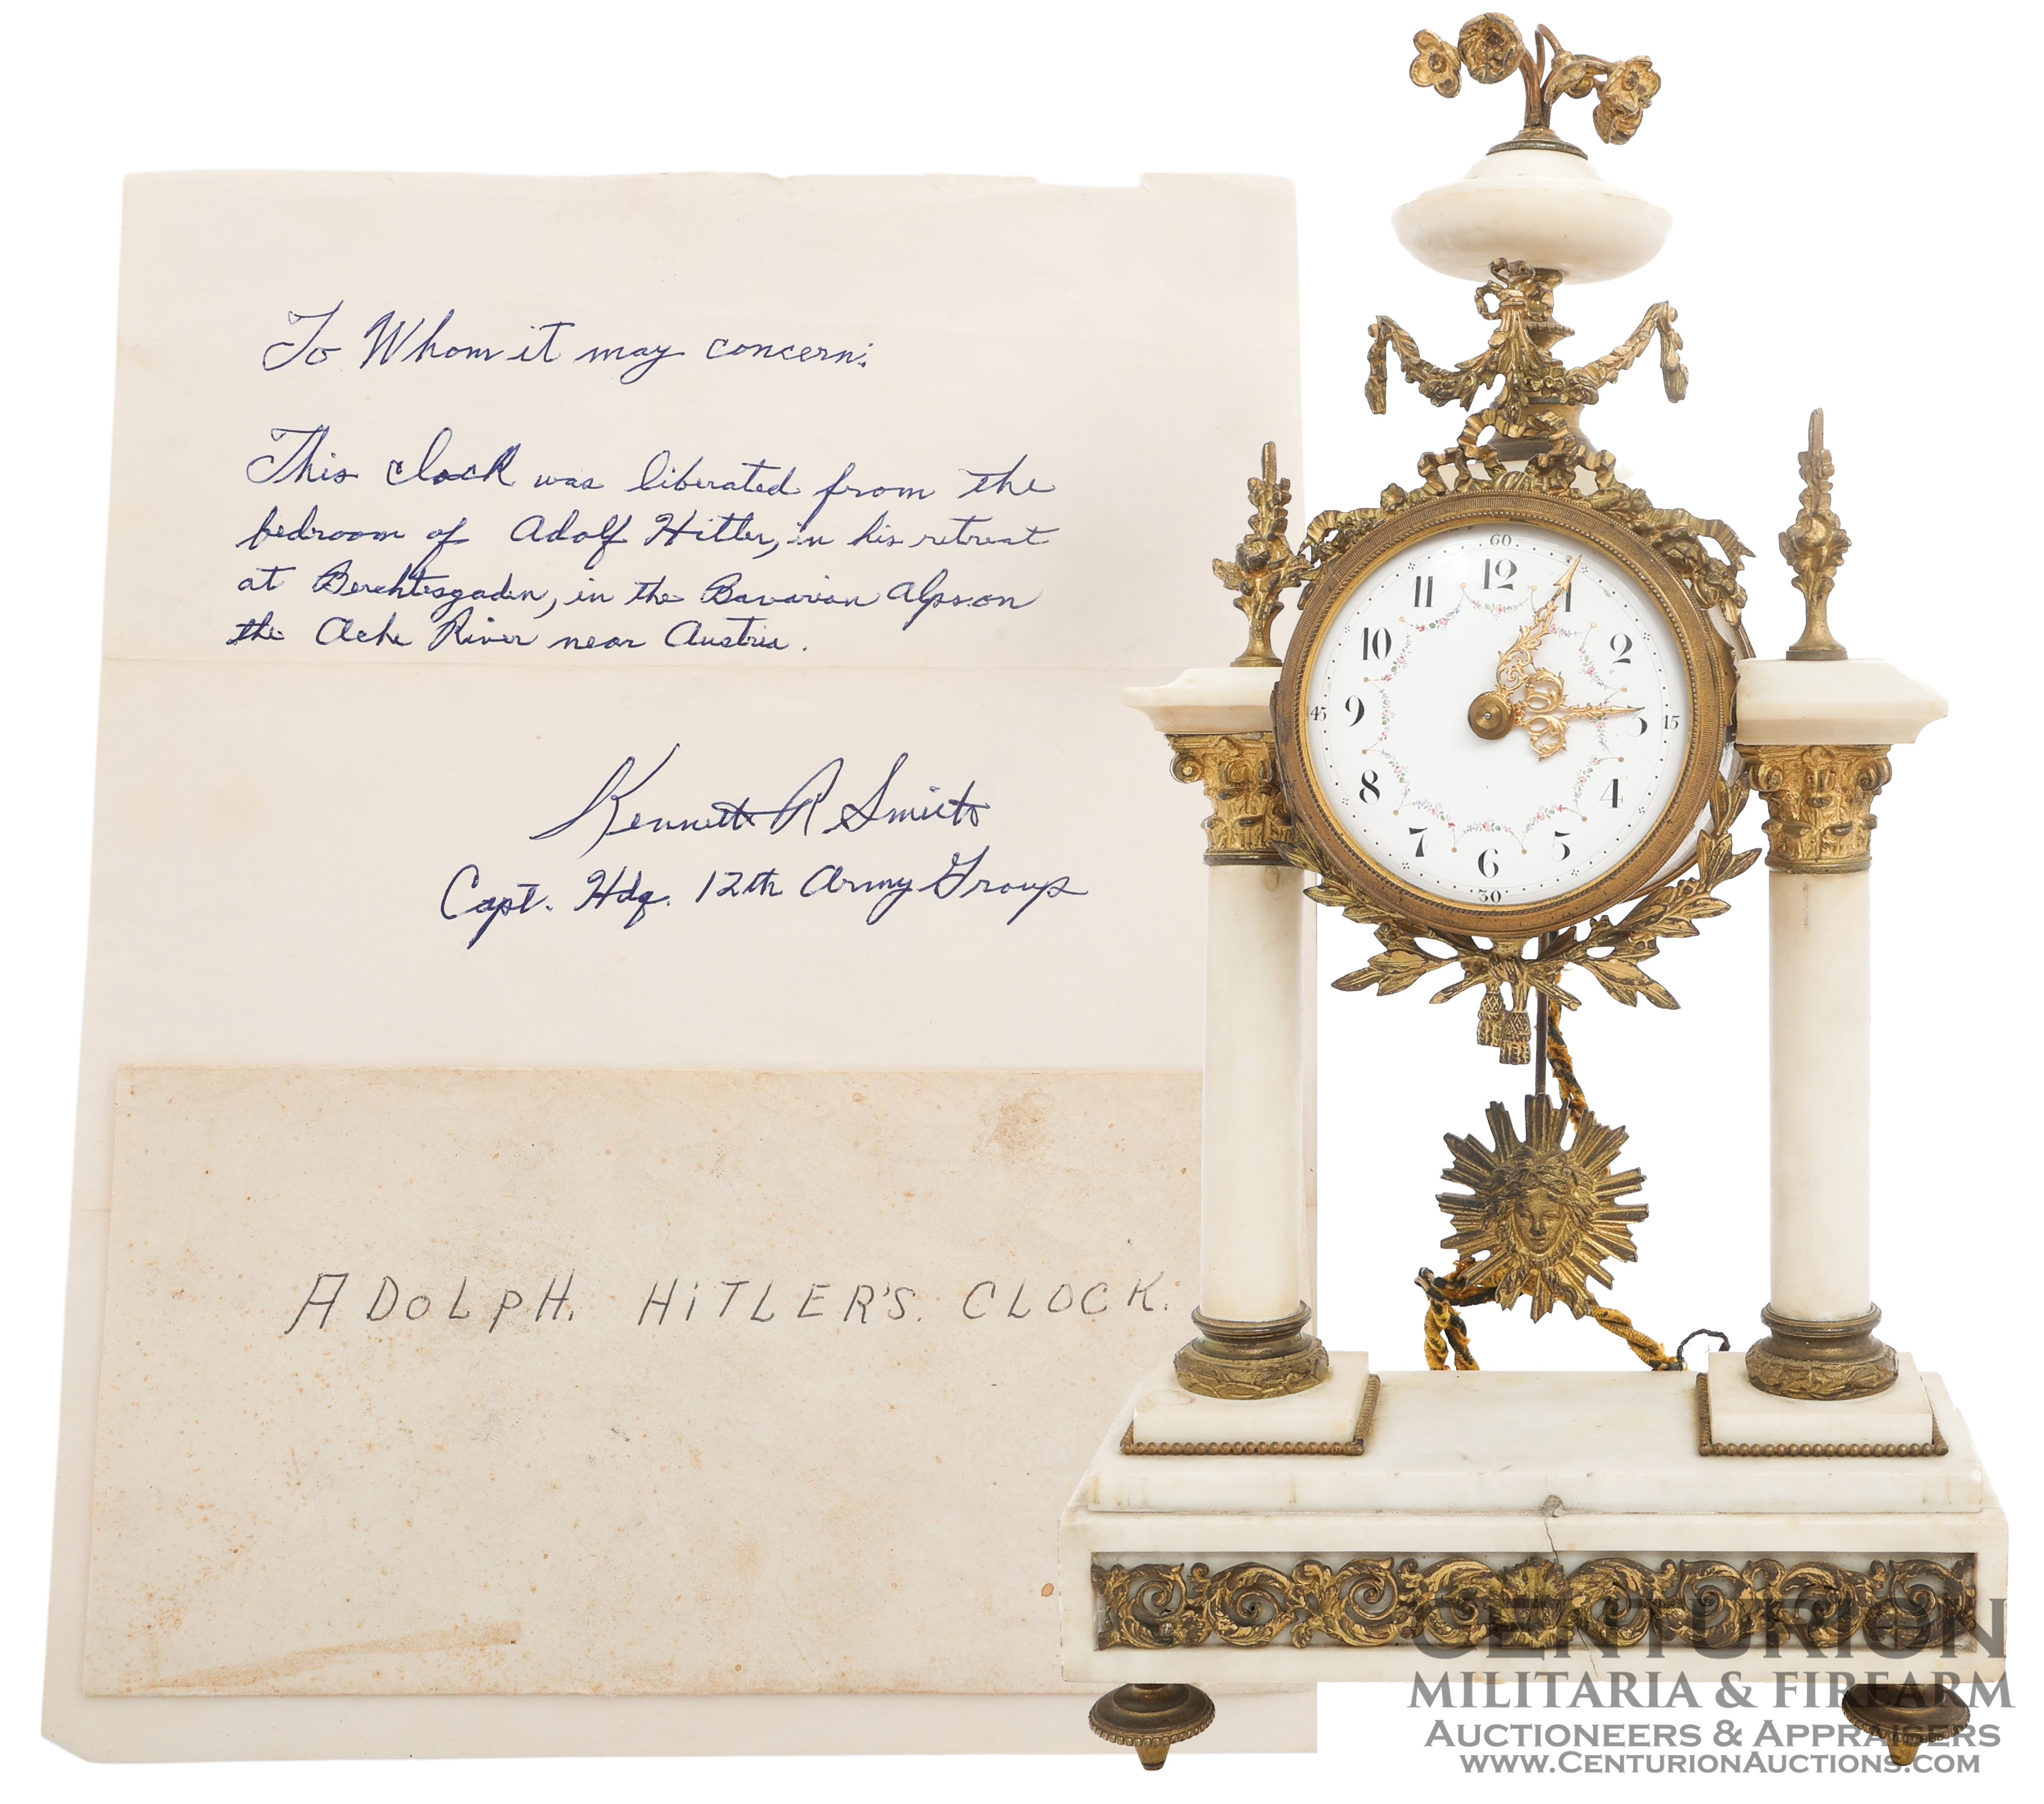 To Whom it may concern:
This clock was liberated from the
bedroom of Adolf Hitler, in his retreat
at Berchtesgaden, in the Bavarian Alps on
the Ache River near Austria.
Kenneth R Smith
Capt. Hdq. 12th Army Group
ADOLPH. HiTLER'S. CLOCK.
60
12
1
2
3
15
4
5
6
30
7
8
9
45
10
11
CENTURION
MILITARIA & FIREARM
AUCTIONEERS & APPRAISERS
WWW.CENTURIONAUCTIONS.COM